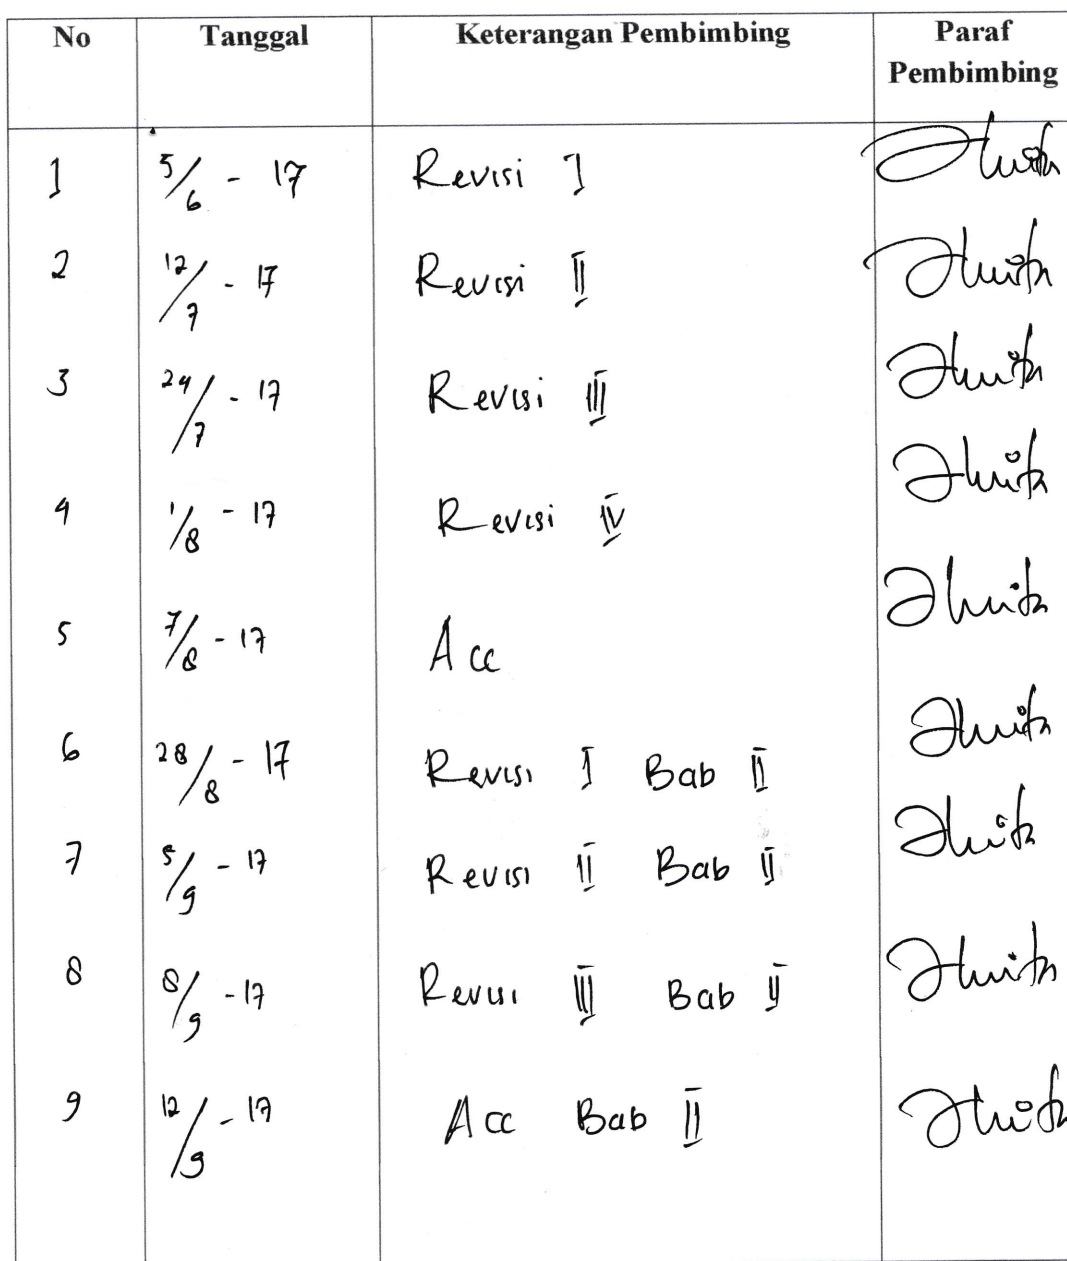 No Tanggal Keterangan Pembimbing Paraf
Pembimbing
1 5/6 - 17 Revisi I
2 12/7 - 17 Revisi II
3 24/7 - 17 Revisi III
4 1/8 - 17 Revisi IV
5 7/8 - 17 Acc
6 28/8 - 17 Revisi I Bab II
7 5/9 - 17 Revisi II Bab II
8 8/9 - 17 Revisi III Bab II
9 12/9 - 17 Acc Bab II